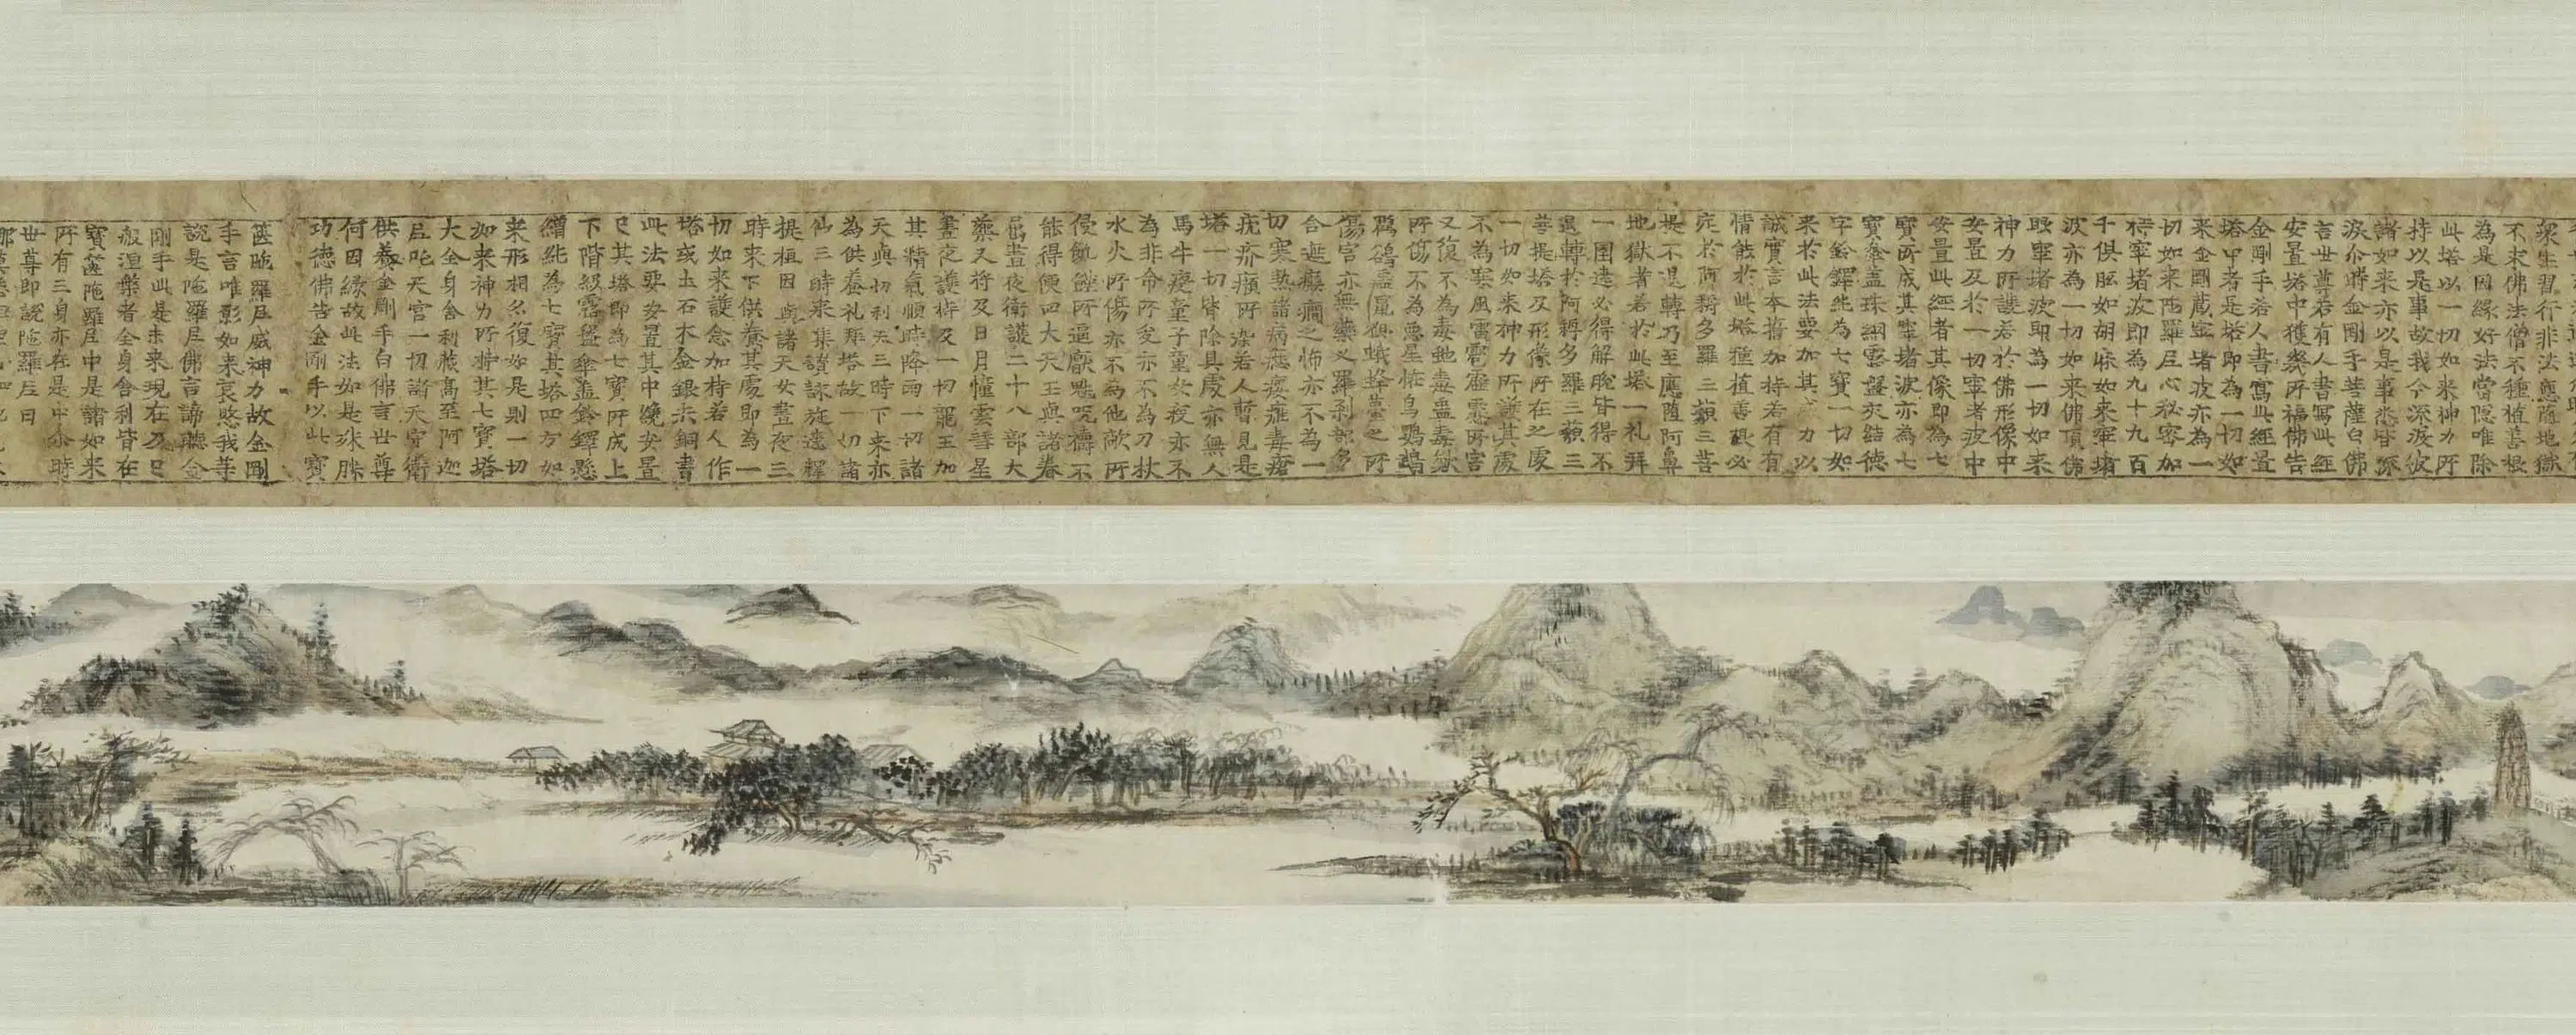 眾生習行非法應墮地獄
不求佛法僧不種植善根
為是因緣妙法當隱唯除
此塔以一切如來神力所
持以是事故我今流淚彼
諸如來亦以是事悉皆流
淚尒時金剛手菩薩白佛
言世尊若有人書寫此經
安置塔中獲幾所福佛告
金剛手若人書寫此經置
塔中者是塔即為一切如
来金剛藏窣堵波亦為一
切如来陁羅尼心秘密加
持窣堵波即為九十九百
千俱胝如胡麻如来窣堵
波亦為一切如来佛頂佛
眼窣堵波即為一切如来
神力所護若於佛形像中
安置及於一切窣者波中
安置此經者其像即為七
寶所成其窣堵波亦為七
寶傘盖珠網露盤交結德
字鈴鐸純為七寶一切如
来於此法要加其威力以
誠實言本誓加持若有有
情能於此塔種植善根必
定於阿耨多羅三藐三菩
提不退轉乃至應墮阿鼻
地獄者若於此塔一礼拜
一圍遶必得解脫皆得不
退轉於阿耨多羅三藐三
菩提塔及形像所在之處
一切如来神力所護其處
不為寒風雷雹霹靂所害
又復不為毒蛇毒蟲毒獸
所傷不為惡星恠鳥鸚鵡
鴝鵒蟲鼠狼蛾蜂蠆之所
傷害亦無藥叉羅剎部多
合遮癲癇之怖亦不為一
切寒熱諸病癧瘻癰毒瘡
疣疥癩所染若人暫見是
塔一切皆除其處亦無人
馬牛疫童子童女疫亦不
為非命所夭亦不為刀杖
水火所傷亦不為他敵所
侵飢饉所逼厭魅呪禱不
能得便四大天王與諸眷
屬晝夜衛護二十八部大
藥叉將及日月幢雲彗星
晝夜護持及一切龍王加
其精氣順時降雨一切諸
天與忉利天三時下来亦
為供養礼拜塔故一切諸
仙三時来集讃詠旋遶釋
提桓因與諸天女晝夜三
時来下供養其處即為一
切如来護念加持若人作
塔或土石木金銀赤銅書
此法要安置其中纔安置
已其塔即為七寶所成上
下階級露盤傘盖鈴鐸懸
繒純為七寶其塔四方如
来形相亦復如是則一切
如来神力所持其七寶塔
大全身舍利藏高至阿迦
尼吒天宮一切諸天守衛
供養金剛手白佛言世尊
何因緣故此法如是殊勝
功德佛告金剛手以此寶
篋陁羅尼威神力故金剛
手言唯願如来哀愍我等
說是陁羅尼佛言諦聽金
剛手此是未来現在及已
般涅槃者全身舍利皆在
寶篋陁羅尼中是諸如来
所有三身亦在是中尒時
世尊即說陁羅尼曰